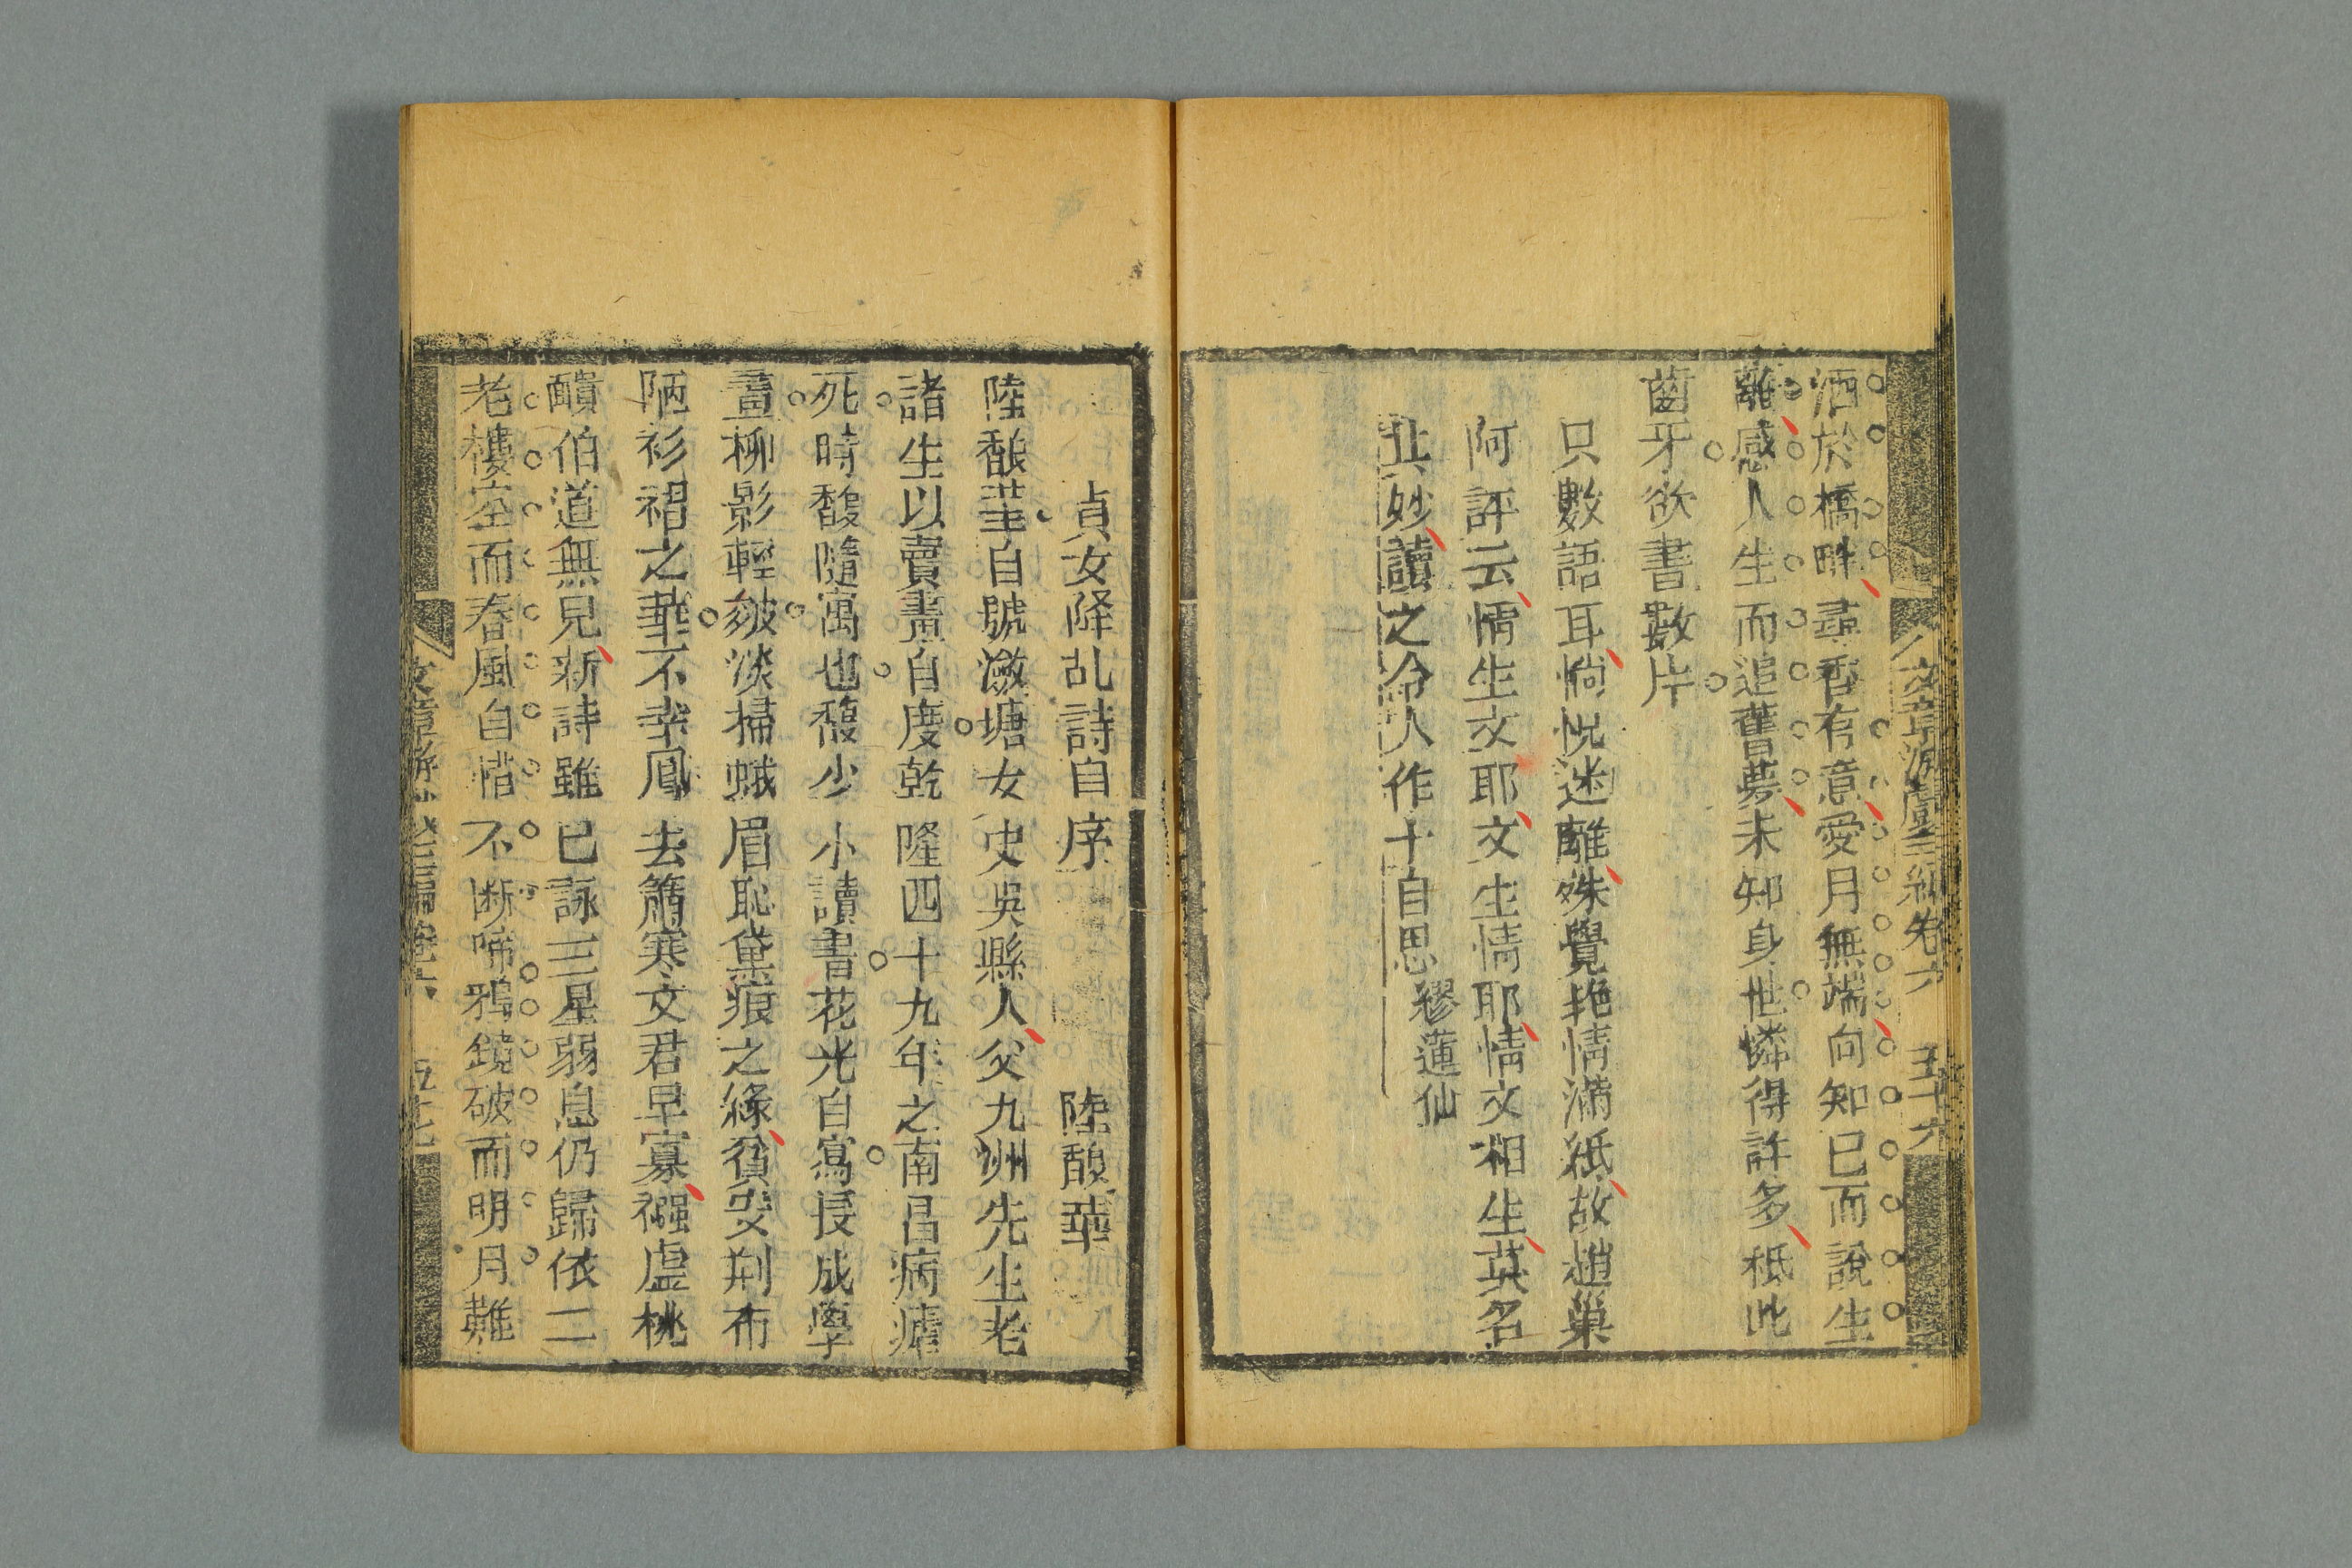 文章游戲三編卷六 五十六
洒於橋畔尋香有意愛月無端向知已而說生
離感人生而追舊夢未知身世憐得許多秪此
齒牙欲書數片
只數語耳惝恍迷離殊覺艳情滿紙故趙巢
阿評云情生文耶文生情耶情文相生莫名
其妙讀之令人作十日思 繆蓮仙
貞女降乩詩自序 陸馥華
陸馥華自號瀲塘女史吳縣人父九洲先生老
諸生以賣畫自度乾隆四十九年之南昌病瘧
死時馥隨寓也馥少小讀書花光自寫長成學
畫柳影輕皴淡掃蛾眉恥黛痕之綠貧安荆布
陋衫裙之華不幸鳳去簫寒文君早寡襁虛桃
醩伯道無兒新詩雖已詠三星弱息仍歸依二
老樓空而春風自惜不斷啼鴉鏡破而明月難
文章游戲三編卷六 五十七